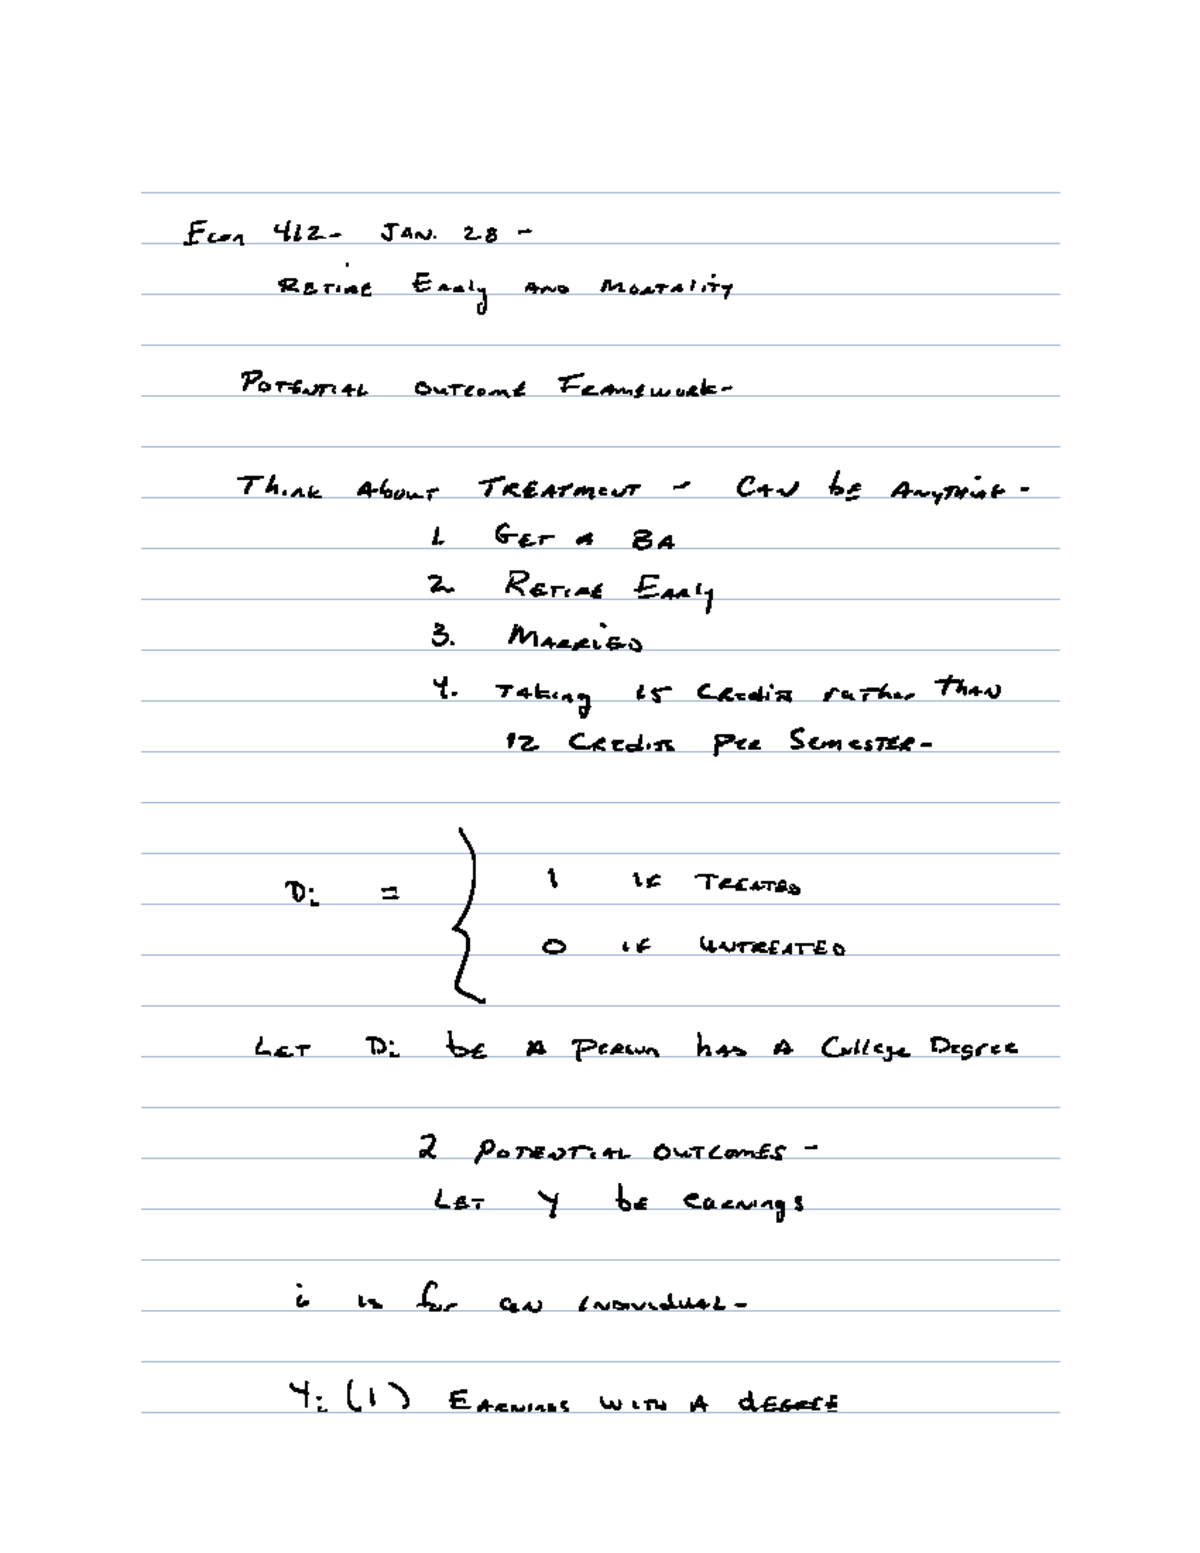 Econ 412- JAN. 28 -
RETIRE Early AND MORTALITY
POTENTIAL OUTCOME FRAMEWORK-
Think About TREATMENT - CAN bE ANYTHING -
1. GET A BA
2. RETIRE EARly
3. MARRIED
4. TAking 15 CREDITS rather THAN
12 CREDITS PER SEMESTER-
Di = { 1 IF TREATED
0 IF UNTREATED
LET Di bE A PERSON has A College Degree
2 POTENTIAL OUTCOMES -
LET Y be EARNINGS
i is for an INDIVIDUAL-
Yi (1) EARNINGS WITH A dEGREE